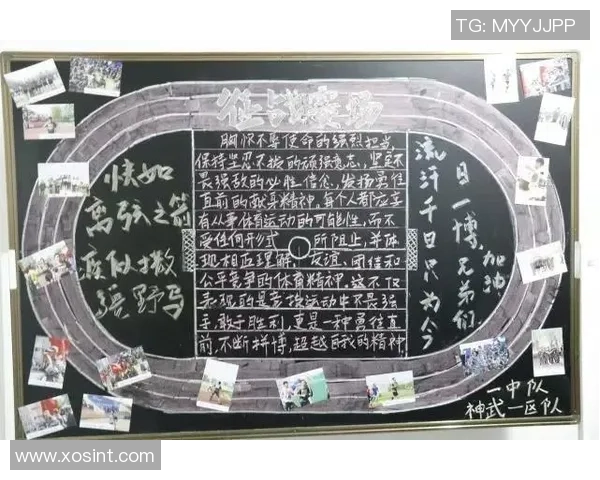 TG: MYYJJPP
征战赛场
快如
离弦之箭
疾似撒
疆野马
胸怀不辱使命的强烈担当,
保持坚忍不拔的顽强意志,坚定不
畏强敌的必胜信念,发扬勇往
直前的献身精神,每个人都应享
有从事体育运动的可能性,而不
受任何形式所阻止,并体
现相互理解、友谊、团结和
公平竞争的体育精神,这不仅
表现的是竞技运动中不畏强
手,敢于胜利,更是一种勇往直
前,不断拼搏,超越自我的精神.
流汗千日只为今
日一博,兄弟们
加油
一中队
神武一区队
www.xosint.com